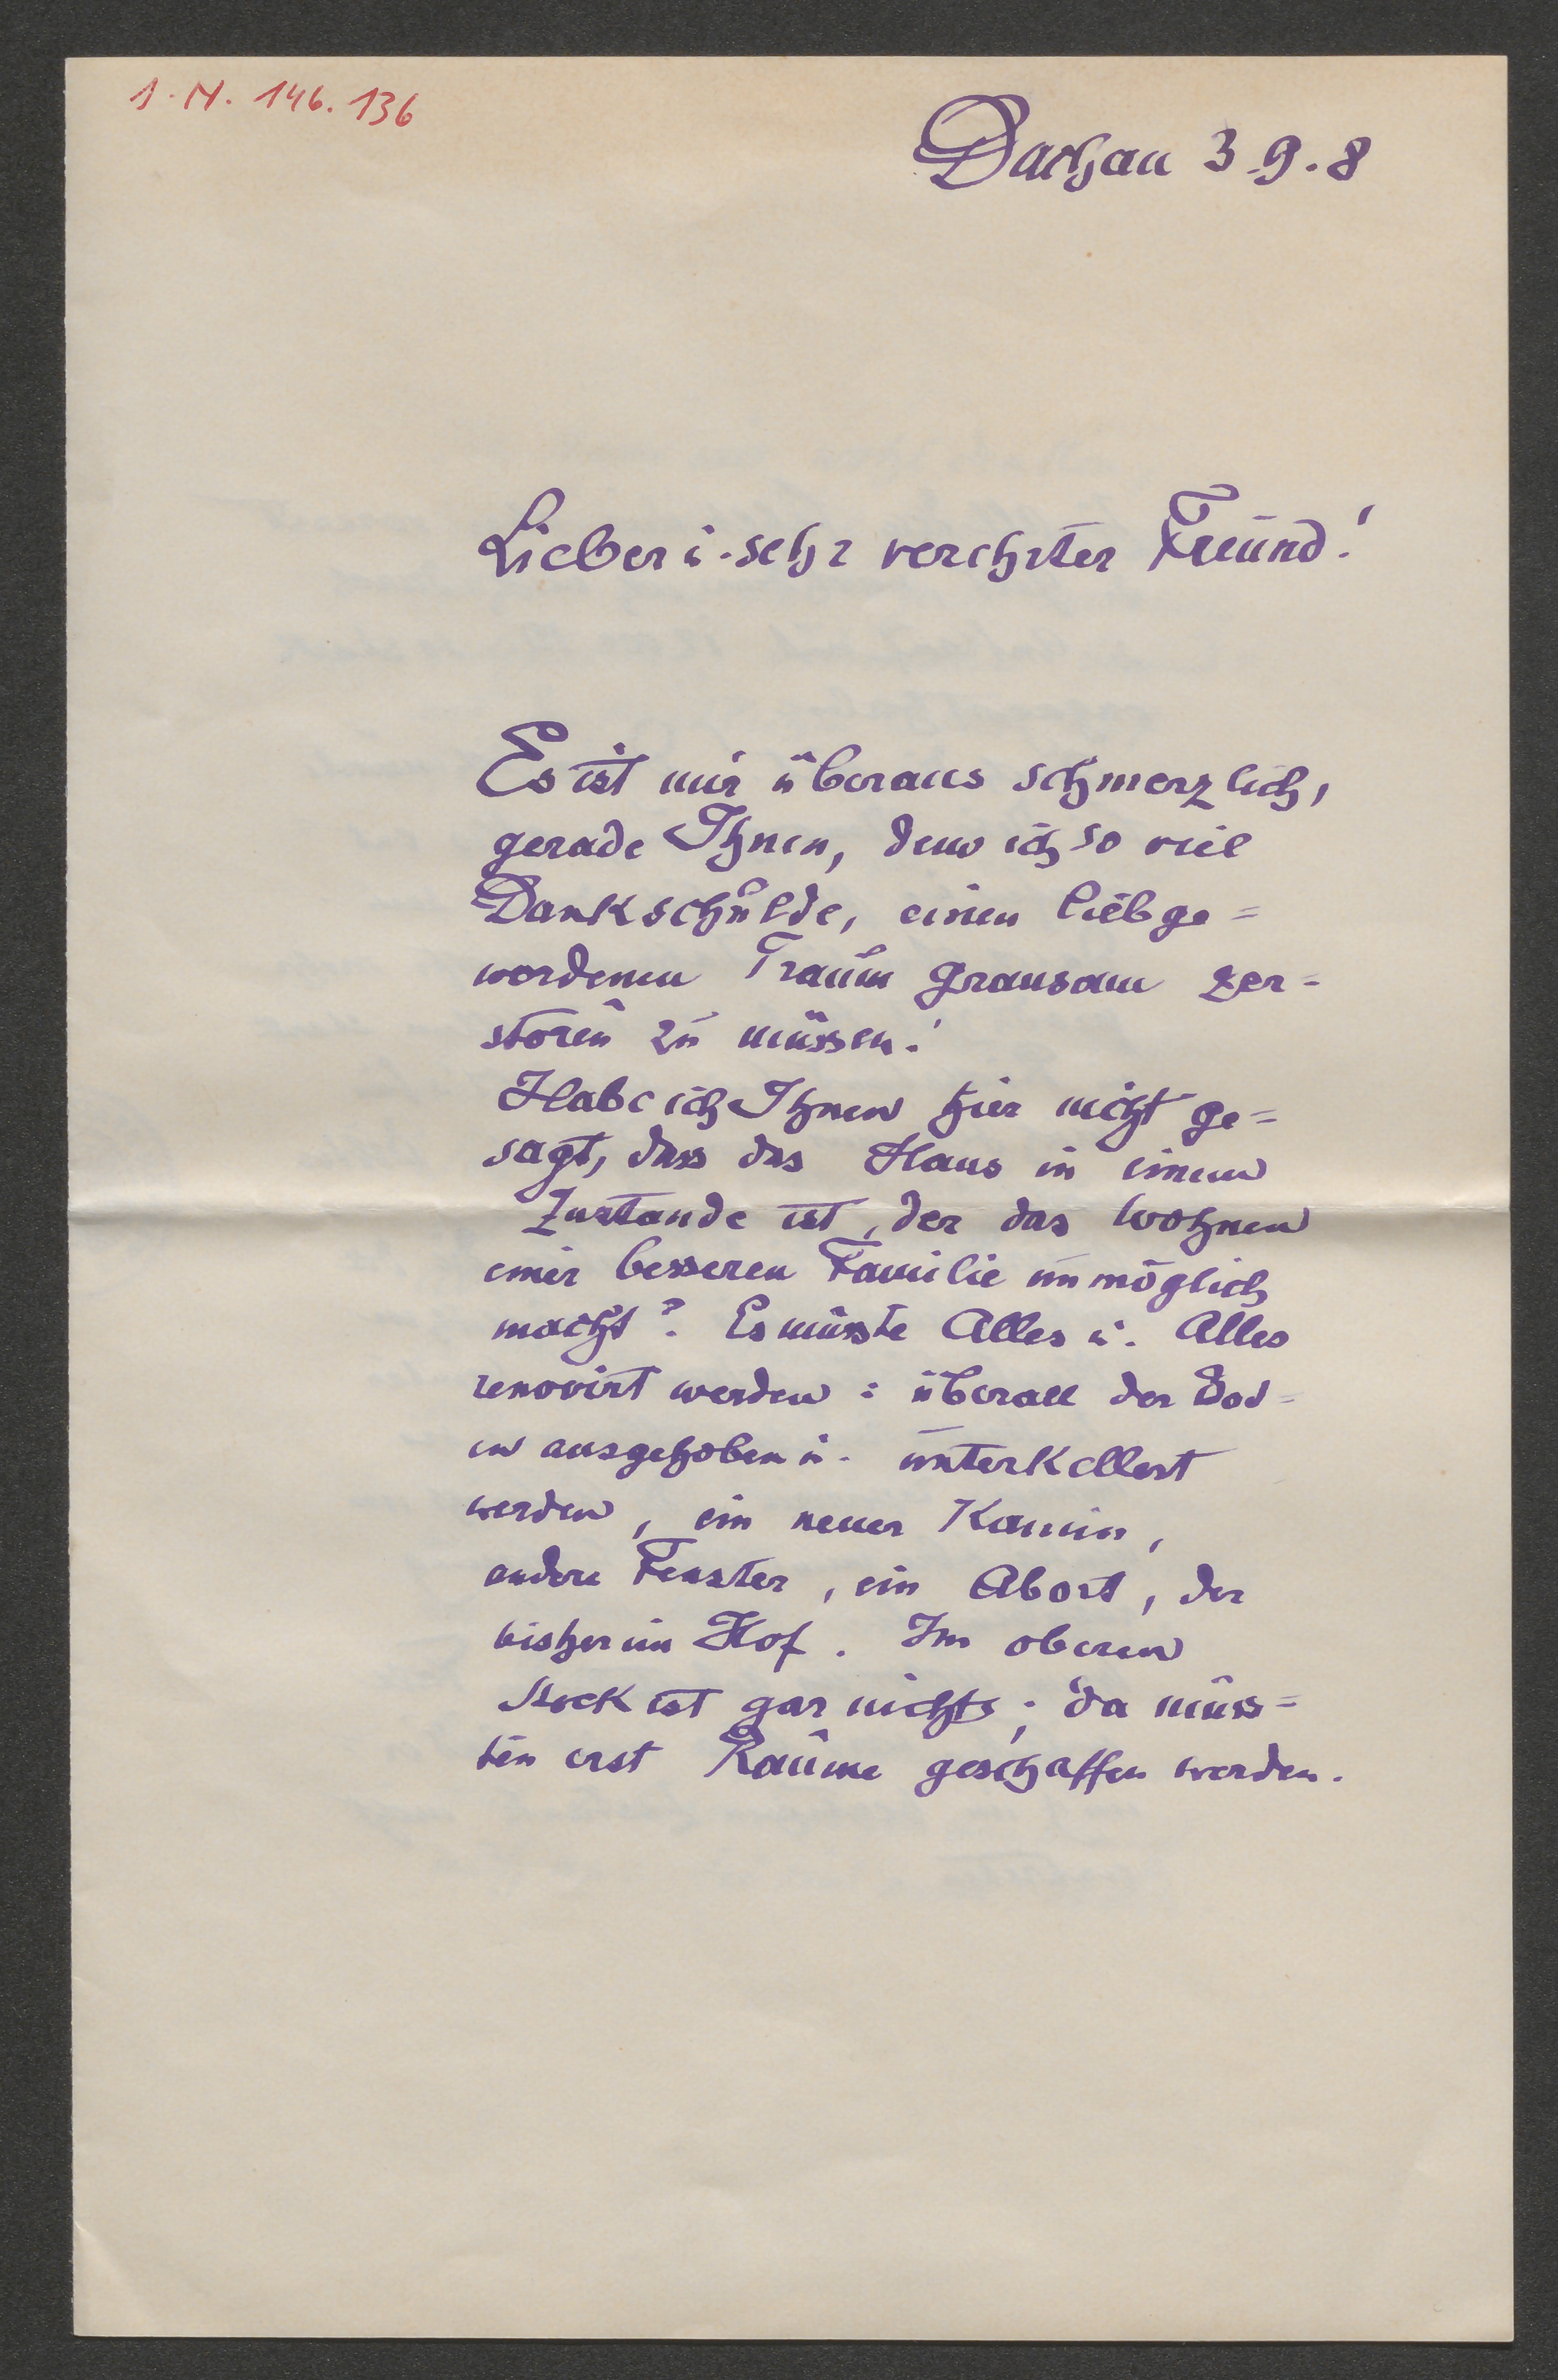 I.N. 146.136
Dachau 3.9.8
Lieber u. sehr verehrter Freund!
Es ist mir überaus schmerzlich,
gerade Ihnen, dem ich so viel
Dank schulde, einen liebge=
wordenen Traum grausam zer=
stören zu müssen!
Habe ich Ihnen hier nicht ge=
sagt, dass das Haus in einem
Zustande ist, der das Wohnen
einer besseren Familie unmöglich
macht? Es müsste Alles u. Alles
renovirt werden: überall der Bod=
en ausgehoben u. unterkellert
werden, ein neuer Kamin,
andere Fenster, ein Abort, der
bisher im Hof. Im oberen
Stock ist gar nichts; da müss=
ten erst Räume geschaffen werden.